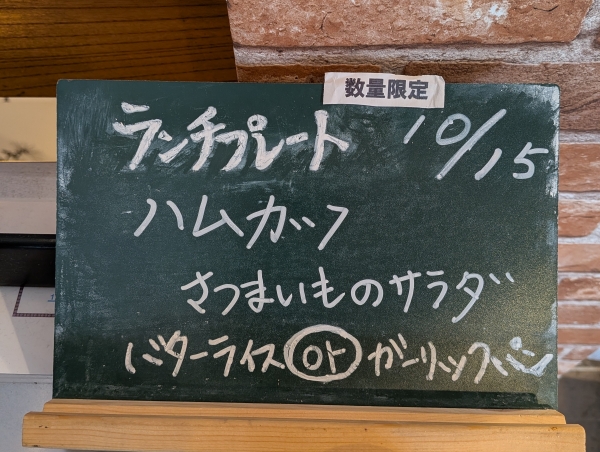 数量限定
ランチプレート 10/15
ハムカツ
さつまいものサラダ
バターライス or ガーリックパン